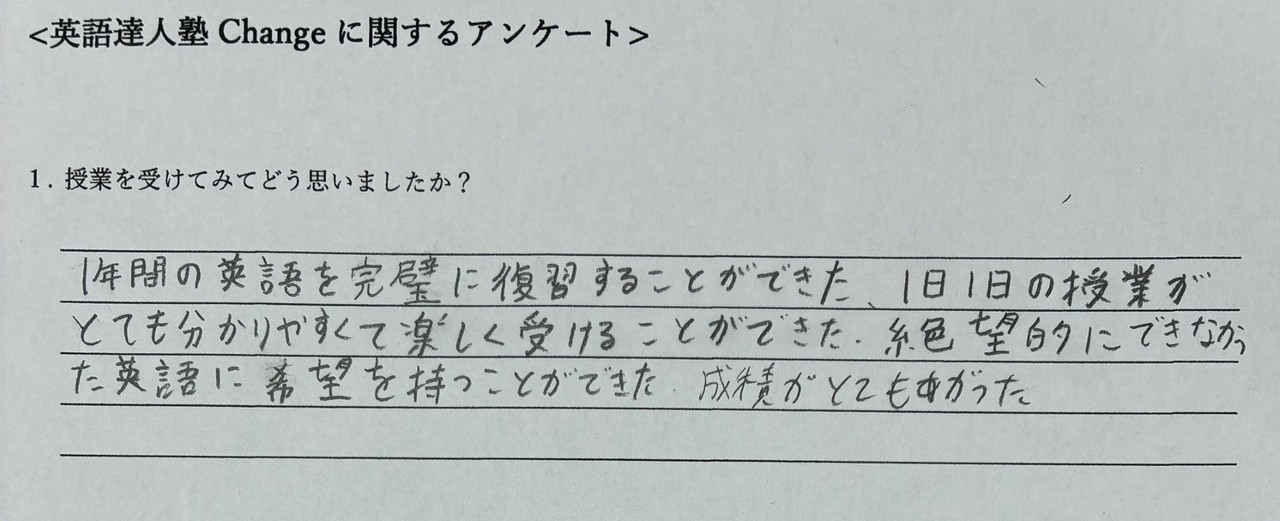 <英語達人塾 Change に関するアンケート>
1. 授業を受けてみてどう思いましたか？
1年間の英語を完璧に復習することができた、1日1日の授業が
とても分かりやすくて楽しく受けることができた. 絶望的にできなかっ
た英語に希望を持つことができた 成績がとてもあがった